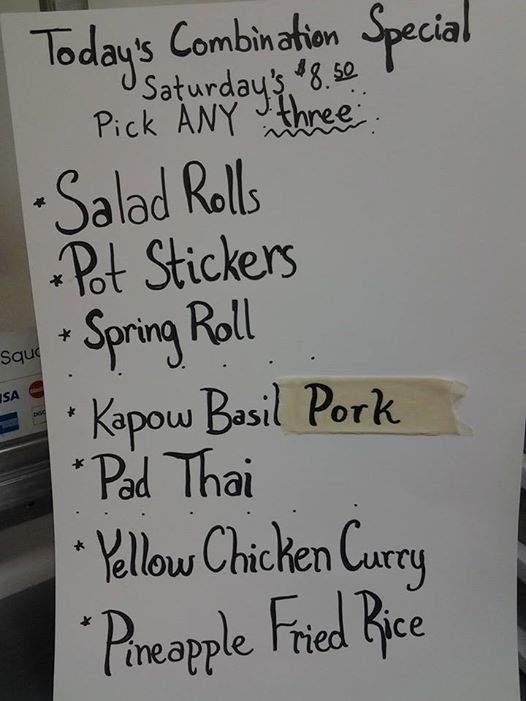 Today's Combination Special
Saturday's $8.50
Pick ANY three
* Salad Rolls
* Pot Stickers
* Spring Roll
Squa
ISA
* Kapow Basil Pork
* Pad Thai
* Yellow Chicken Curry
* Pineapple Fried Rice